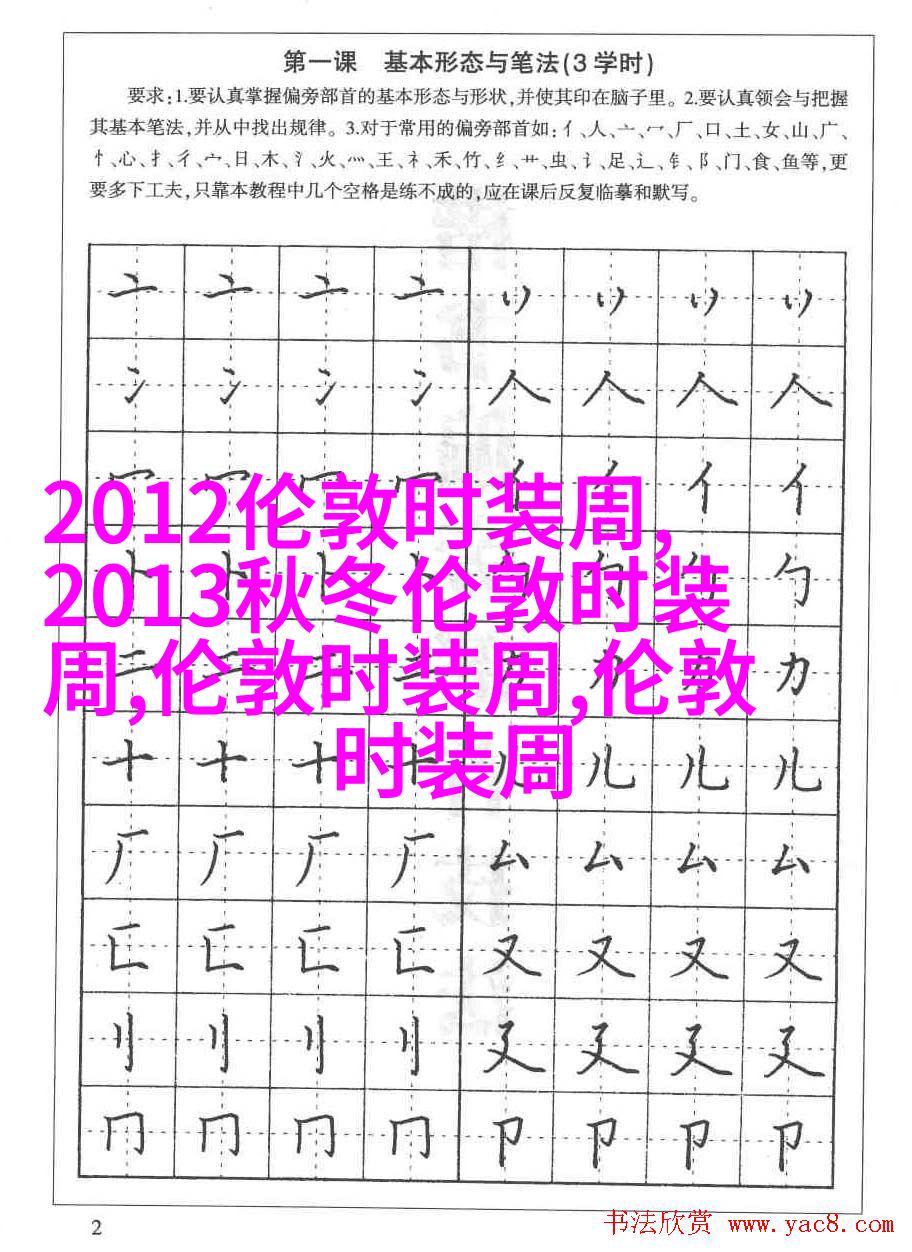 第一课 基本形态与笔法(3学时)
要求:1.要认真掌握偏旁部首的基本形态与形状,并使其印在脑子里。2.要认真领会与把握
其基本笔法,并从中找出规律。3.对于常用的偏旁部首如:亻、人、亠、冖、厂、口、土、女、山、广、
忄、心、扌、彳、宀、日、木、氵、火、灬、王、礻、禾、竹、纟、艹、虫、讠、足、辶、钅、阝、门、食、鱼等,更
要多下工夫,只靠本教程中几个空格是练不成的,应在课后反复临摹和默写。
亠 亠 亠 亠 丷 丷 丷 丷
冫 冫 冫 冫 人 人 人 人
冖 冖 冖 冖 亻 亻 亻 亻
2012伦敦时装周,
卜 卜 卜 卜 勹 勹 勹 勹
2013秋冬伦敦时装
二 二 二 二 力 力 力 力
周,伦敦时装周,伦敦
十 十 十 十 儿 儿 儿 儿
时装周
厂 厂 厂 厂 厶 厶 厶 厶
匚 匚 匚 匚 又 又 又 又
刂 刂 刂 刂 廴 廴 廴 廴
冂 冂 冂 冂 卩 卩 卩 卩
2
书法欣赏 www.yac8.com